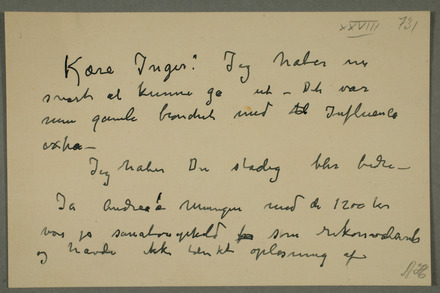 XXVIII 731
Kære Inger! Jeg haaber nu
snart at kunne gå ut – Det var
min gamle bronchit med Influenca
extra –
Jeg haaber Du stadig blir bedre –
Ja Andreas Mungen med de 1200 kr
var jo som rekonvalesent
og havde ikke tænkt opløsning af